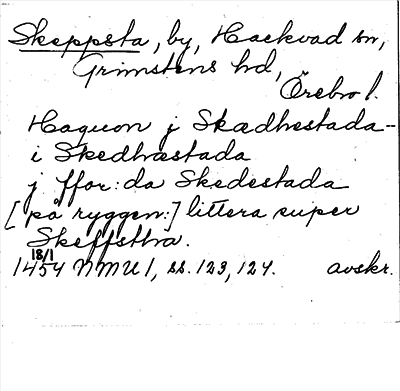 Skeppsta, by, Hackvad sn,
Grimstens hd,
Örebro l.
Haquon j Skædhestada-
i Skedhæstada
j ffor:da Skedestada
[på ryggen:] littera super
Skeffsttra.
18/1
1454 NMU 1, ss. 123, 124. avskr.